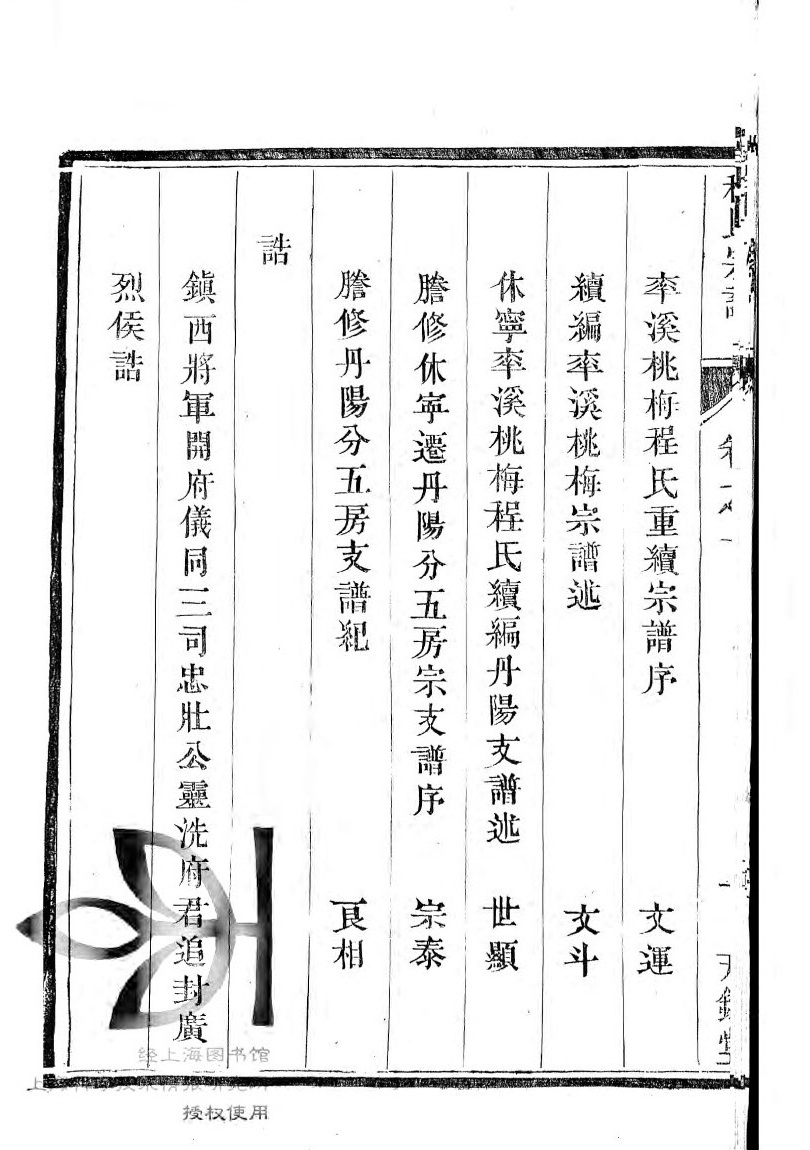 率溪桃梅程氏重續宗譜序 文運
續編率溪桃梅宗譜述 文斗
休寧率溪桃梅程氏續編丹陽支譜述 世顯
謄修休寧遷丹陽分五房宗支譜序 宗泰
謄修丹陽分五房支譜紀 良相
誥
鎮西將軍開府儀同三司忠壯公靈洗府君追封廣
烈侯誥
经上海图书馆
授权使用